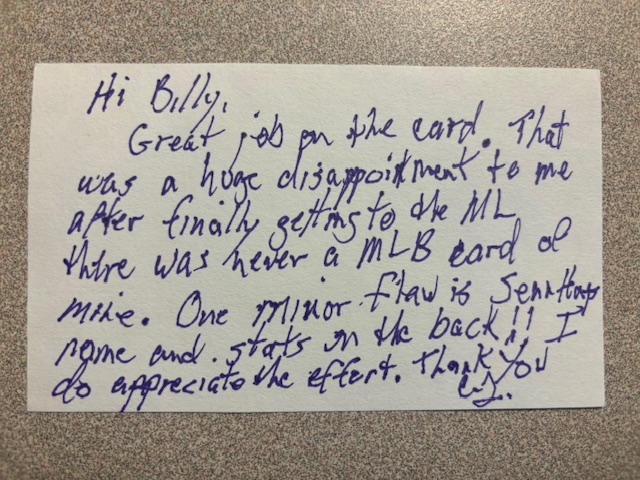 Hi Billy,
Great job on the card. That
was a huge disappointment to me
after finally getting to the ML
there was never a MLB card of
mine. One minor flaw is
name and stats on the back!! I
do appreciate the effort. Thank You